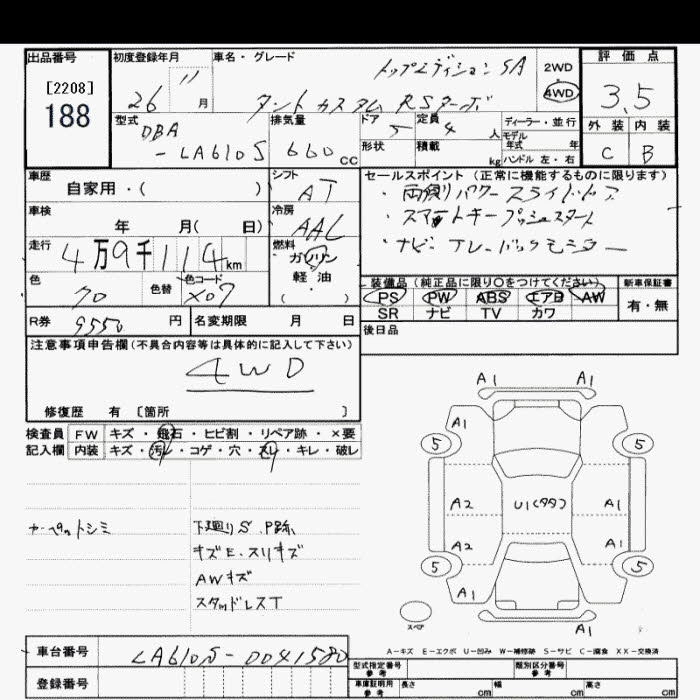 出品番号
[2208]
188
初度登録年月
26 11 月
車名・グレード
トップエディション SA
タント カスタム RSターボ
2WD
4WD
評価点
3.5
外装 内装
C B
型式
DBA
-LA610S
排気量
660 cc
ドア
5
定員
4 人
形状
積載
kg
ディーラー・並行
モデル
年式 年
ハンドル 左・右
車歴
自家用・( )
シフト
AT
車検
年 月( 日)
冷房
AAC
走行
4万9千114km
燃料
ガソリン
軽・油
( )
色
色替
色コード
X07
セールスポイント (正常に機能するものに限ります)
・両側パワースライドドア
・スマートキープッシュスタート
・ナビ
装備品 (純正品に限り○をつけてください)
PS PW ABS エアB AW
SR ナビ TV カワ
新車保証書
有・無
R券 9550 円
名変期限 月 日
後日品
注意事項申告欄 (不具合内容等は具体的に記入して下さい)
4WD
修復歴 有 [箇所 ]
検査員
記入欄
FW キズ・飛石・ヒビ割・リペア跡・×要
内装 キズ・汚レ・コゲ・穴・スレ・キレ・破レ
カーペットシミ
下廻りS.
キズE.スリキズ
AWキズ
スタッドレスT
A1 A1
A1
5 5
A2 U1(タタ) A1
A2 A1
5 5
A1
スペア
A1
A-キズ E-エクボ U-凹み W-補修跡 S-サビ C-腐食 XX-交換済
車台番号
LA610S-0041580
登録番号
型式指定番号
参考
類別区分番号
参考
車庫証明用
参考
長さ cm
幅 cm
高さ cm